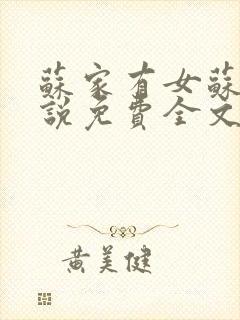 蘇家有女蘇
說免費全文
黃美健